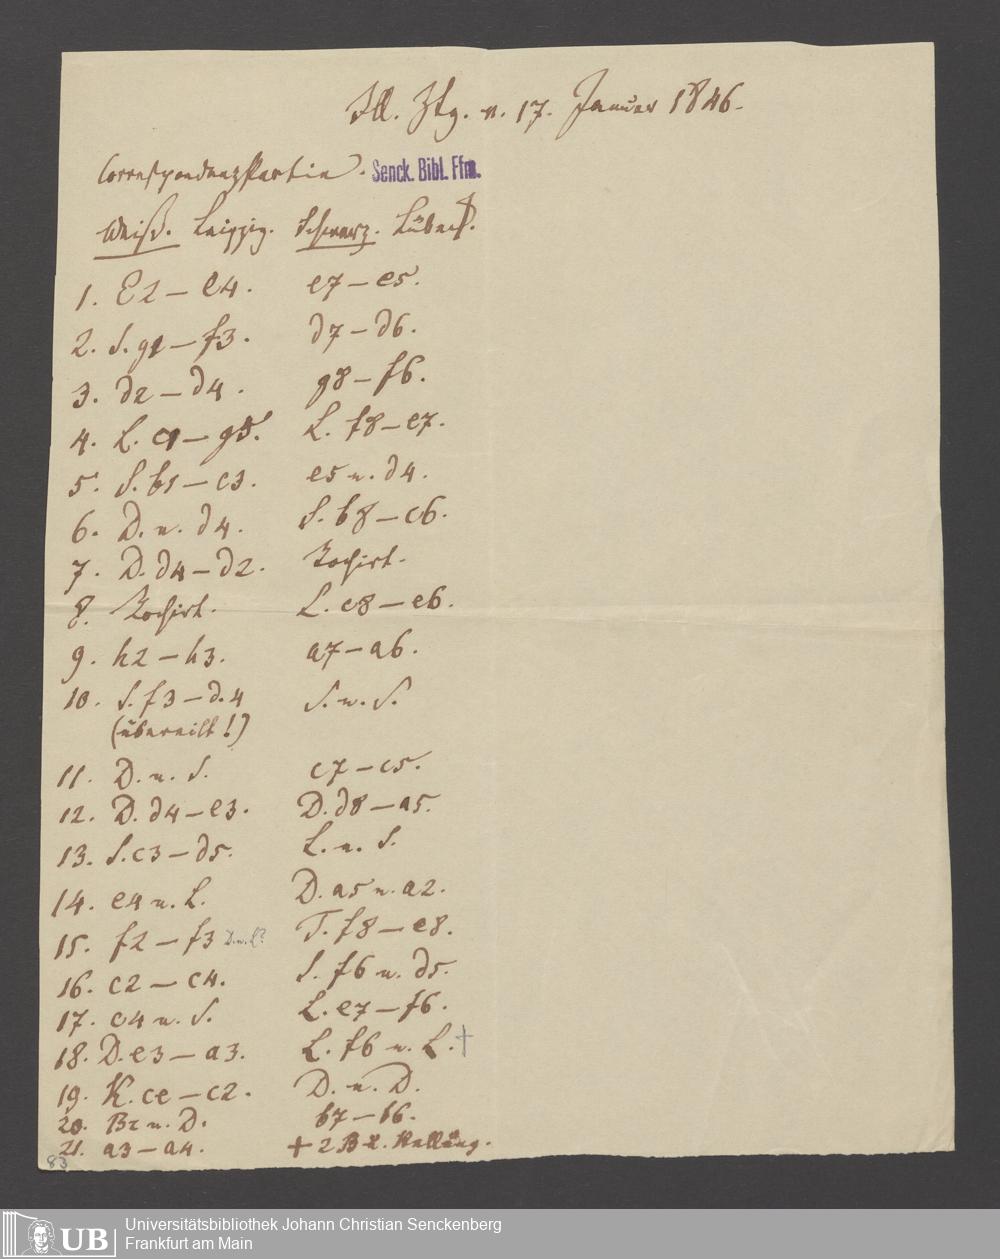 Ill. Ztg. v. 17. Januar 1846.
Correspondenz Partie. Senck. Bibl. Ffm.
Weiß. Leipzig. Schwarz. Lübeck.
1. E2 – e4. e7 – e5.
2. S. g1 – f3. d7 – d6.
3. d2 – d4. g8 – f6.
4. L. c1 – g5. L. f8 – e7.
5. S. b1 – c3. e5 n. d4.
6. D. n. d4. S. b8 – c6.
7. D. d4 – d2. Rochirt.
8. Rochirt. L. c8 – e6.
9. h2 – h3. a7 – a6.
10. S. f3 – d.4 S. n. S.
(übereilt!)
11. D. n. S. c7 – c5.
12. D. d4 – e3. D. d8 – a5.
13. S. c3 – d5. L. n. S.
14. e4 n. L. D. a5 n. a2.
15. f2 – f3 D. n. L? T. f8 – e8.
16. c2 – c4. S. f6 n. d5.
17. c4 n. S. L. e7 – f6.
18. D. e3 – a3. L. f6 n. L. †
19. K. ce – c2. D. n. D.
20. Br n. D. b7 – b6.
21. a3 – a4. + 2 B
83
UB Universitätsbibliothek Johann Christian Senckenberg
Frankfurt am Main